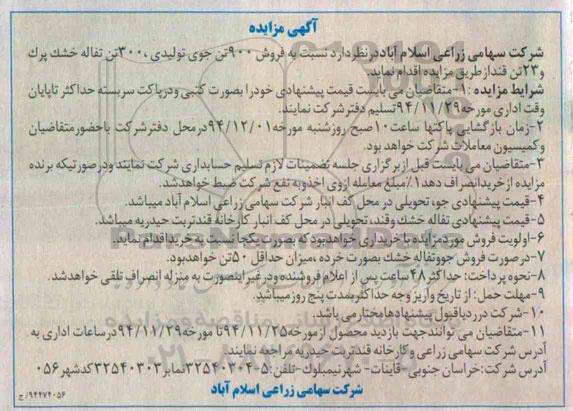 آگهی مزایده
شرکت سهامی زراعی اسلام آباددر نظر دارد نسبت به فروش ۹۰۰تن جوی تولیدی ،۳۰۰تن تفاله خشک پرک
و۲۳تن قنداز طریق مزایده اقدام نماید.
شرایط مزایده :۱-متقاضیان می بایست قیمت پیشنهادی خودرا بصورت کتبی ودرپاکت سربسته حداکثر تاپایان
وقت اداری مورخه۹۴/۱۱/۲۹تسلیم دفتر شرکت نمایند.
۲-زمان بازگشایی پاکتها ساعت۱۰صبح روزشنبه مورخه۹۴/۱۲/۰۱درمحل دفترشرکت باحضورمتقاضیان
وکمیسیون معاملات شرکت خواهد بود.
۳-متقاضیان می بایست قبل از برگزاری جلسه تضمینات لازم تسلیم حسابداری شرکت نمایند ودرصورتیکه برنده
مزایده از خریدانصراف دهد۱٪مبلغ معامله ازوی اخذوبه نفع شرکت ضبط خواهدشد.
۴-قیمت پیشنهادی جو، تحویلی در محل کف انبار شرکت سهامی زراعی اسلام آباد میباشد.
۵-قیمت پیشنهادی تفاله خشک وقند، تحویلی در محل کف انبار کارخانه قندتربت حیدریه میباشد.
۶-اولویت فروش موردمزایده با خریداری خواهدبود که بصورت یکجا نسبت به خریداقدام نماید.
۷-درصورت فروش جووتفاله خشک بصورت خرده ،میزان حداقل ۵۰تن خواهدبود.
۸-نحوه پرداخت: حداکثر ۴۸ساعت پس از اعلام فروشنده ودرغیراینصورت به منزله انصراف تلقی خواهدشد.
۹-مهلت حمل: از تاریخ واریز وجه حداکثر بمدت پنج روز میباشد.
۱۰-شرکت دررد یاقبول پیشنهادها مختار می باشد.
۱۱-متقاضیان می توانندجهت بازدید محصول ازمورخه۹۴/۱۱/۲۵تا مورخه۹۴/۱۱/۲۹درساعات اداری به
آدرس شرکت سهامی زراعی وکارخانه قندتربت حیدریه مراجعه نمایند.
آدرس شرکت:خراسان جنوبی- قاینات- شهرنیمبلوک-تلفن:۵-۳۲۵۴۰۳۰۴نمابر۳۲۵۴۰۳۰۳کدشهر۰۵۶
شرکت سهامی زراعی اسلام آباد
۹۴۴۷۴۰۵۶/ج